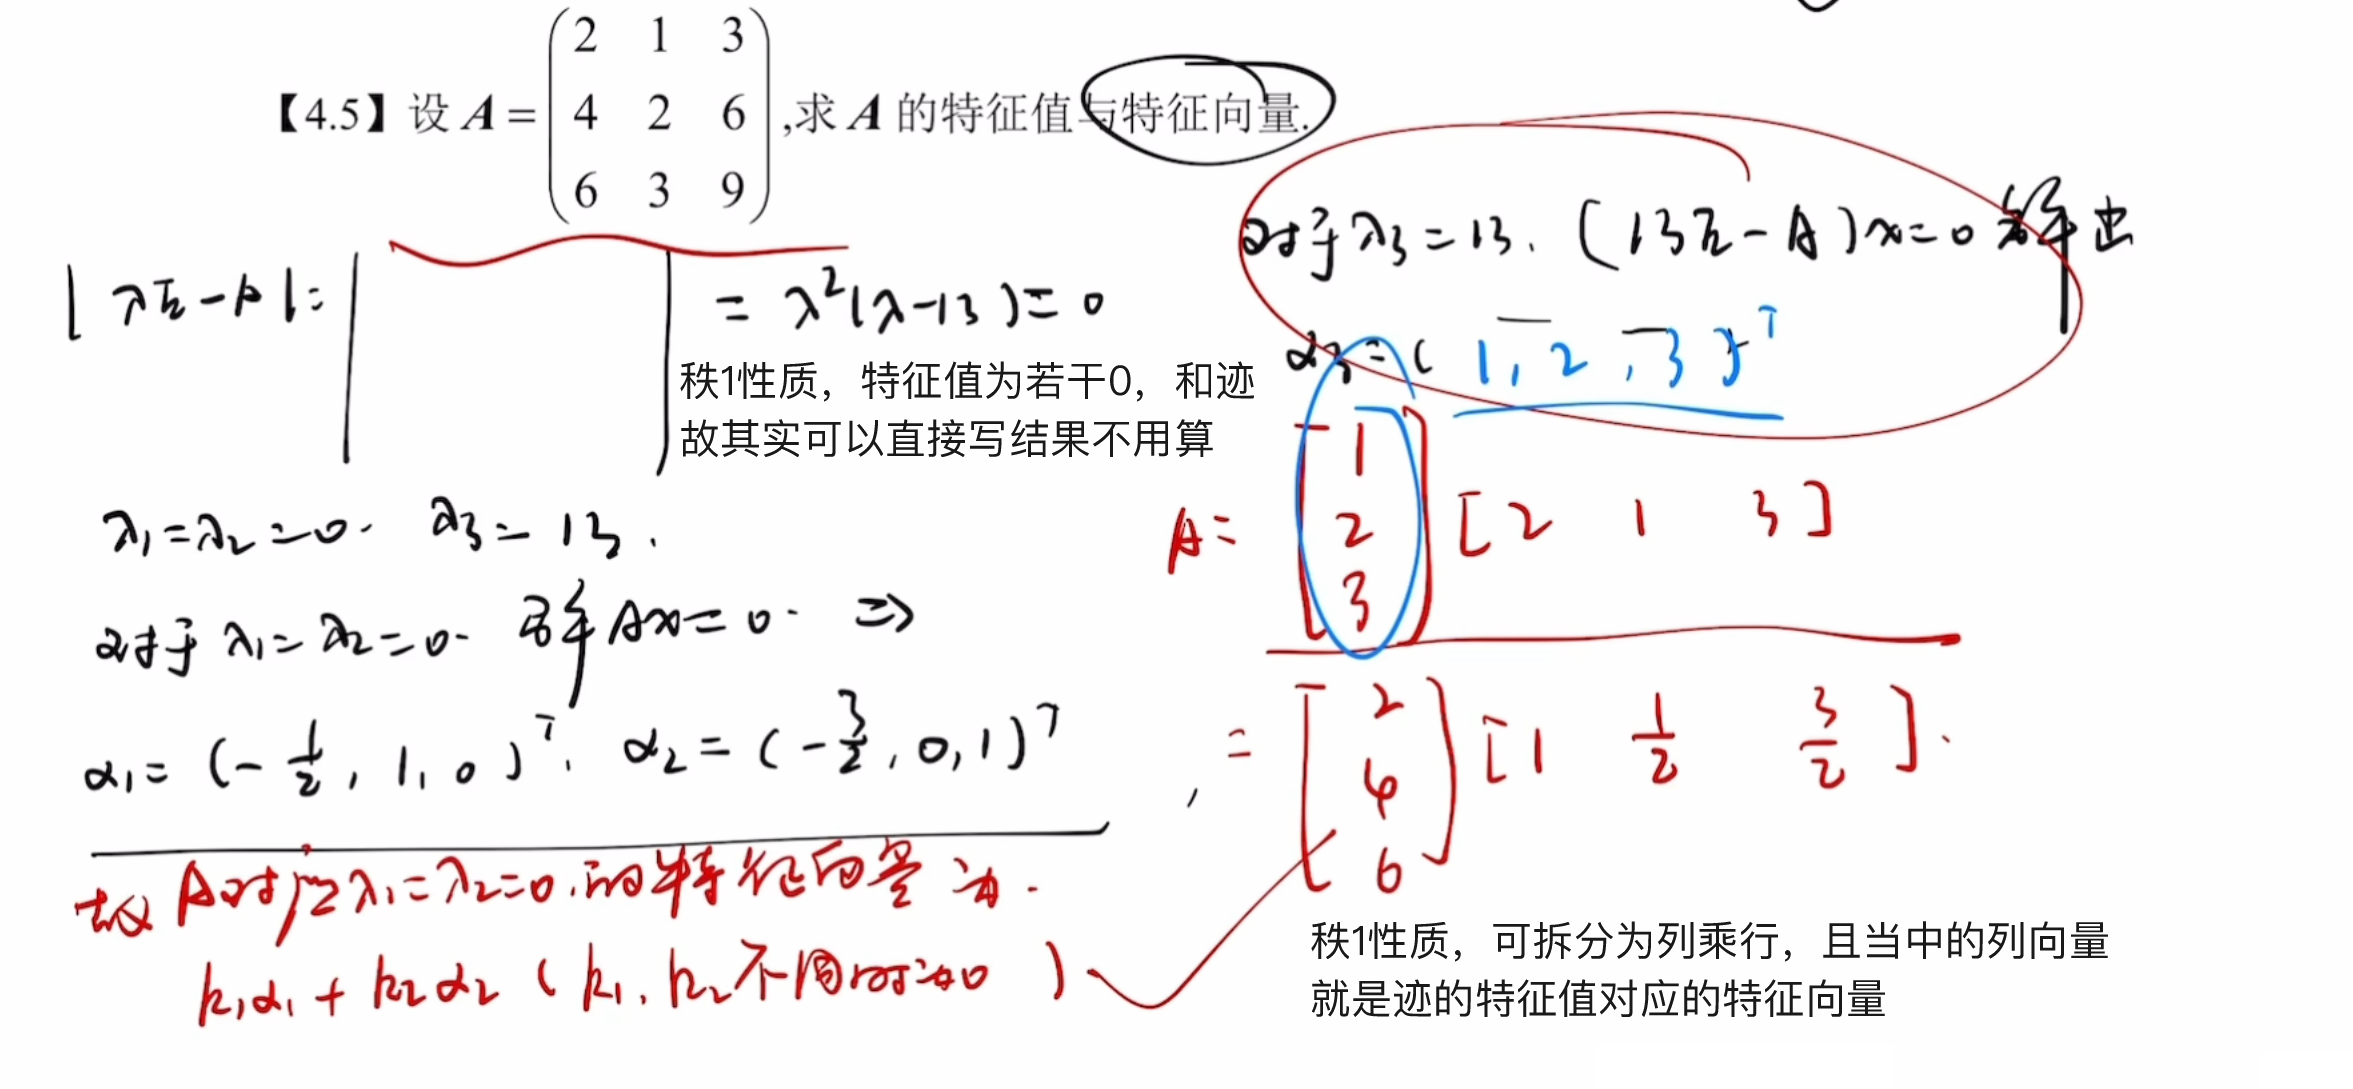 【4.5】设 A = ( 2 1 3
4 2 6
6 3 9 ) ,求 A 的特征值与特征向量.
|λE-A|= | | = λ²(λ-13)=0
秩1性质，特征值为若干0，和迹
故其实可以直接写结果不用算
λ₁=λ₂=0. λ₃=13.
对于λ₁=λ₂=0. 解Ax=0. ⇒
α₁=(-1/2, 1, 0)ᵀ, α₂=(-3/2, 0, 1)ᵀ,
故A对应λ₁=λ₂=0.的特征向量为.
k₁α₁+k₂α₂(k₁,k₂不同时为0)
对于λ₃=13. (13E-A)x=0解出
α₃=(1,2,3)ᵀ
A= [ 1
2
3 ] [2 1 3]
= [ 2
4
6 ] [1 1/2 3/2].
秩1性质，可拆分为列乘行，且当中的列向量
就是迹的特征值对应的特征向量